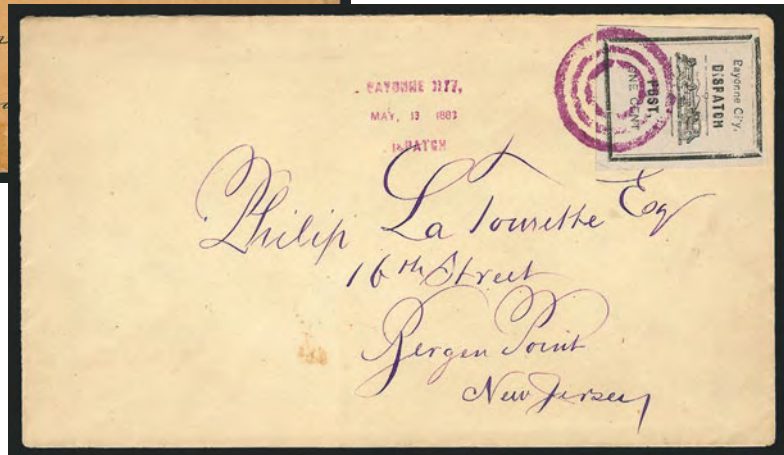 BAYONNE CITY,
MAY, 13 1883
DISPATCH
Bayonne City.
DISPATCH
POST,
ONE CENT
Philip La Tourette Esq
16th Street
Bergen Point
New Jersey